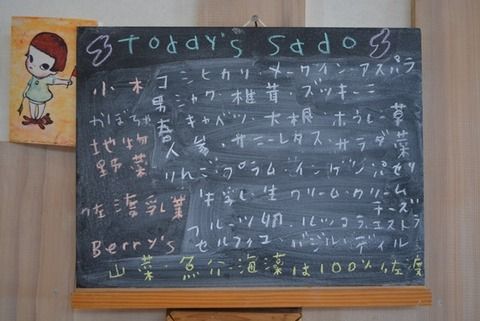 Today's Sado
小木 コシヒカリ・メークイン・アスパラ
男シャク・椎茸・ズッキーニ
かぼちゃ 春キャベツ・大根・ホウレン草
地物 人参・サニーレタス・サラダ菜
野菜 りんご・プラム・インゲン・パセリ
佐渡乳業 牛乳・生クリーム・クリームチーズ
フルーツ・ルッコラ・エストラ
Berry's セルフィユ・バジル・ディル
山菜・魚介・海藻は100%佐渡